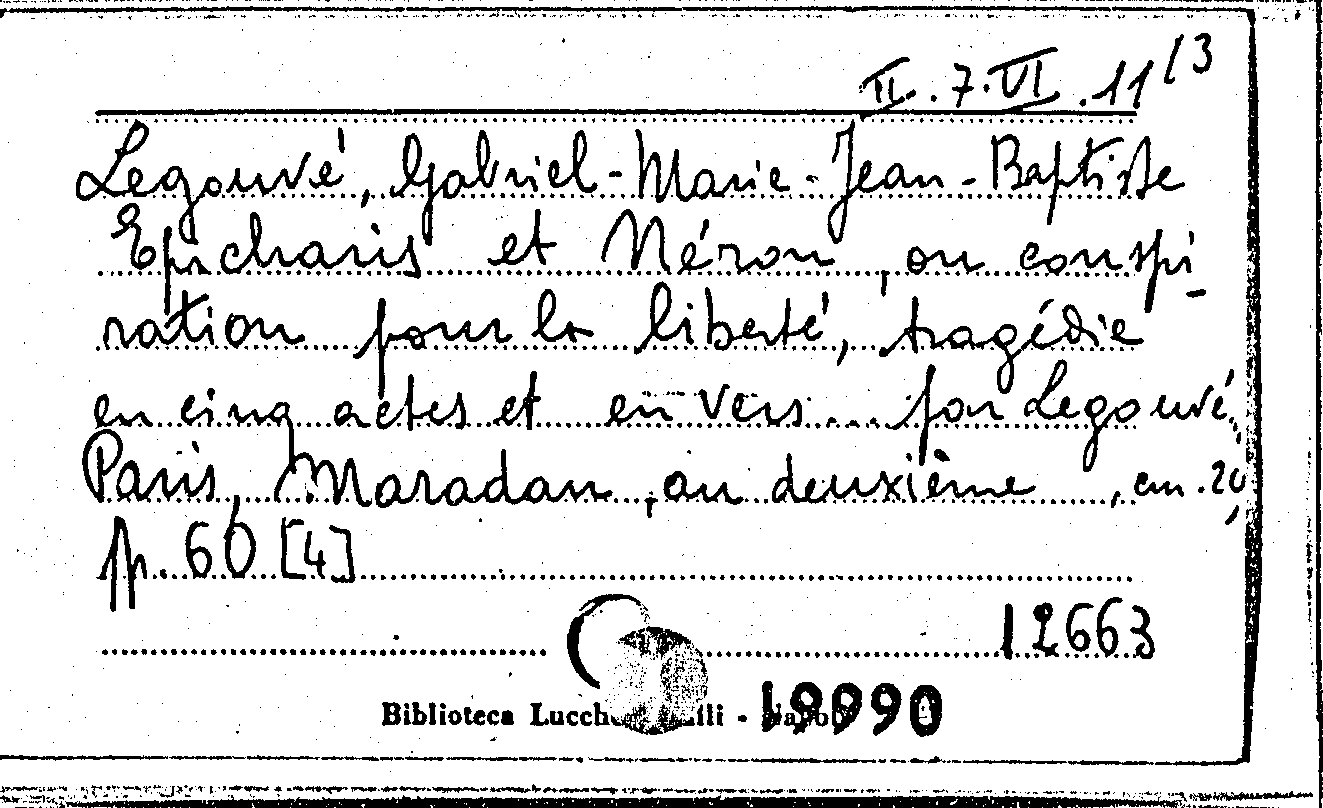 II.7.VI.11/3
Legouvé, Gabriel-Marie-Jean-Baptiste
Epicharis et Néron, ou conspi-
ration pour la liberté, tragédie
en cinq actes et en vers... par Legouvé,
Paris, Maradan, an deuxième, cm.20,
p. 60 [4]
12663
Biblioteca
19990